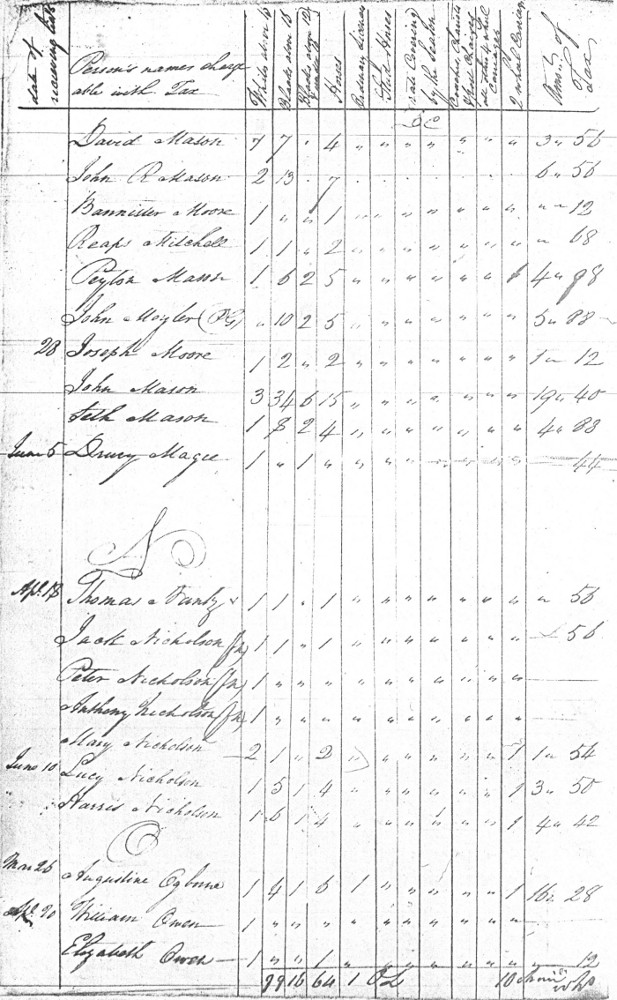 date of receiving lists
Person's names charge
able with Tax
Whites above 16
Blacks above 16
Blacks above 12
Horses
Ordinary License
Stud Horses
rate Covering
by the Season
2 wheel Carriages
Amt. of Tax
David Mason 7 7 . 4 " " " " " " " 3 " 56
John R Mason 2 13 . 7 . . . . . . . 6 " 56
Bannister Moore 1 " " 1 " " " " " " " " " 12
Reaps Mitchell 1 1 " 2 " " " " " " " " 68
Peyton Mason 1 6 2 5 " " " " " " 1 4 " 98
John Mayler (PG) " 10 2 5 " " " " " " " 5 " 88
28 Joseph Moore 1 2 " 2 " " " " " " " 1 " 12
John Mason 3 34 6 15 " " " " " " " 19 " 40
Seth Mason 1 8 2 4 " " " " " " " 4 " 88
June 5 Drury Magee 1 " 1 " " " " " " " " 44
N
Apl. 18 Thomas Vantz 1 1 . 1 " " " " " " " " 56
Jack Nicholson (fn) 1 1 " 1 " " " " " " " 56
Peter Nicholson (fn) 1 " " " " " " " " " "
Anthony Nicholson (fn) 1 " " " " " " " " " "
Mary Nicholson 2 1 " 2 " " " " " " 1 1 " 54
June 10 Lucy Nicholson 1 5 1 4 " " " " " " 1 3 " 50
Harris Nicholson 1 6 1 4 " " " " " " 1 4 " 42
O
Mar 26 Augustine Ogburne 1 4 1 6 1 " " " " " 1 16 " 28
Apl. 20 William Owen 1 " " " " " " " " " "
Elizabeth Owen 1 " " 1 " " " " " " " " 12
99 16 64 1 10